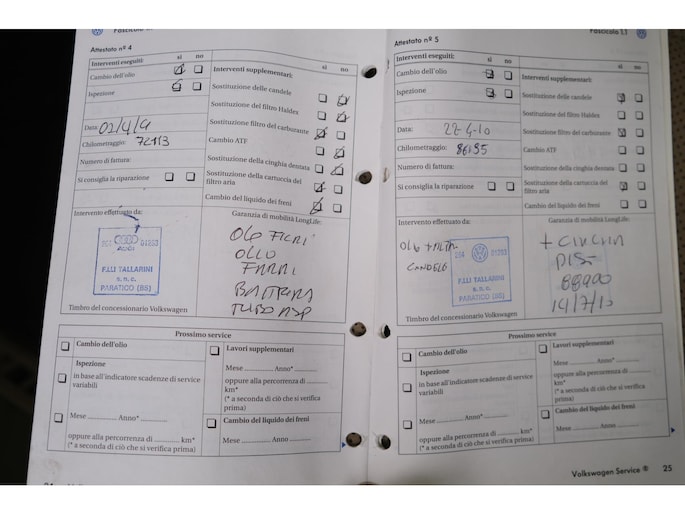 Attestato nº 4
Interventi eseguiti:
sì
no
Cambio dell'olio
Ispezione
Data:
02/4/9
Chilometraggio:
72113
Numero di fattura:
Si consiglia la riparazione
Interventi supplementari:
sì
no
Sostituzione delle candele
Sostituzione del filtro Haldex
Sostituzione filtro del carburante
Cambio ATF
Sostituzione della cinghia dentata
Sostituzione della cartuccia del filtro aria
Cambio del liquido dei freni
Intervento effettuato da:
AUDI
F.LLI TALLARINI
s.n.c.
PARATICO (BS)
Timbro del concessionario Volkswagen
Garanzia di mobilità LongLife:
OLIO
BATTERIA
TUBO ASP
Prossimo service
Cambio dell'olio
Ispezione
in base all'indicatore scadenze di service
variabili
Mese .............. Anno* ..............
oppure alla percorrenza di ............ km*
(* a seconda di ciò che si verifica prima)
Lavori supplementari
Mese .............. Anno* ..............
oppure alla percorrenza di ............
km*
(* a seconda di ciò che si verifica
prima)
Cambio del liquido dei freni
Mese .............. Anno ..............
Attestato nº 5
Fascicolo 1.1
Interventi eseguiti:
sì
no
Cambio dell'olio
Ispezione
Data:
22-4-10
Chilometraggio:
86195
Numero di fattura:
Si consiglia la riparazione
Interventi supplementari:
sì
no
Sostituzione delle candele
Sostituzione del filtro Haldex
Sostituzione filtro del carburante
Cambio ATF
Sostituzione della cinghia dentata
Sostituzione della cartuccia del
filtro aria
Cambio del liquido dei freni
Intervento effettuato da:
CANDELE
F.LLI TALLARINI
s.n.c.
PARATICO (BS)
Timbro del concessionario Volkswagen
Garanzia di mobilità LongLife:
14/7/10
Prossimo service
Cambio dell'olio
Ispezione
in base all'indicatore scadenze di service
variabili
Mese .............. Anno* ..............
oppure alla percorrenza di ............ km*
(* a seconda di ciò che si verifica prima)
Lavori supplementari
Mese .............. Anno* ..............
oppure alla percorrenza di ............
km*
(* a seconda di ciò che si verifica
prima)
Cambio del liquido dei freni
Mese .............. Anno ..............
Volkswagen Service ® 25